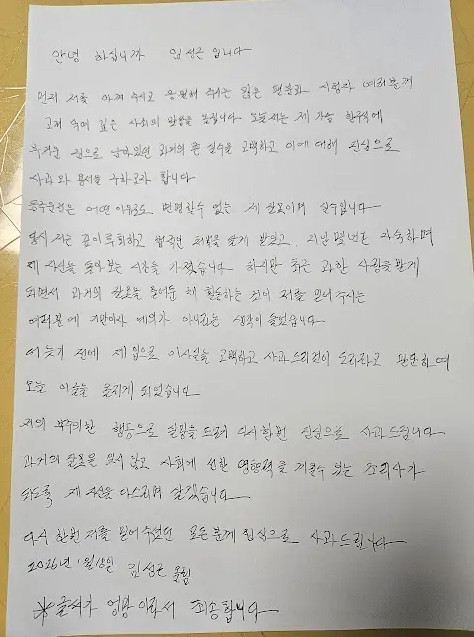 안녕 하십니까 임성근 입니다
먼저 저를 아껴 주시고 응원해 주시는 많은 팬분과 시청자 여러분께
고개 숙여 깊은 사죄의 말씀을 올립니다 오늘 저는 제 가슴 한구석에
무거운 짐으로 남아있던 과거의 큰 실수을 고백하고 이에 대해 진심으로
사과와 용서를 구하고자 합니다
음주운전은 어떤 이유로도 변명할수 없는 제 잘못이며 실수입니다
당시 저는 깊이 후회하고 법적인 처벌을 달게 받았고, 지난 몇년은 자숙하며
제 자신을 돌아 보는 시간을 가졌습니다 하지만 최근 과한 사랑을 받게
되면서 과거의 잘못을 묻어둔 채 활동하는 것이 저를 믿어주시는
여러분에 기만이자 예의가 아니라는 생각이 들었습니다
더 늦기 전에 제 입으로 이사실을 고백하고 사과드리것이 도리라고 판단하여
오늘 이글을 올리게 되었습니다
저의 부주의한 행동으로 실망을 드려 다시한번 진심으로 사과드립니다
과거의 잘못을 잊지 않고 사회에 선한 영향력을 끼칠수 있는 조리사가
되도록 제 자신을 다스리며 살겠습니다
다시 한번 저를 믿어주셨던 모든분께 진심으로 사과드립니다
2026년 1월18일 임성근 올림
※글씨가 엉망이라서 죄송합니다